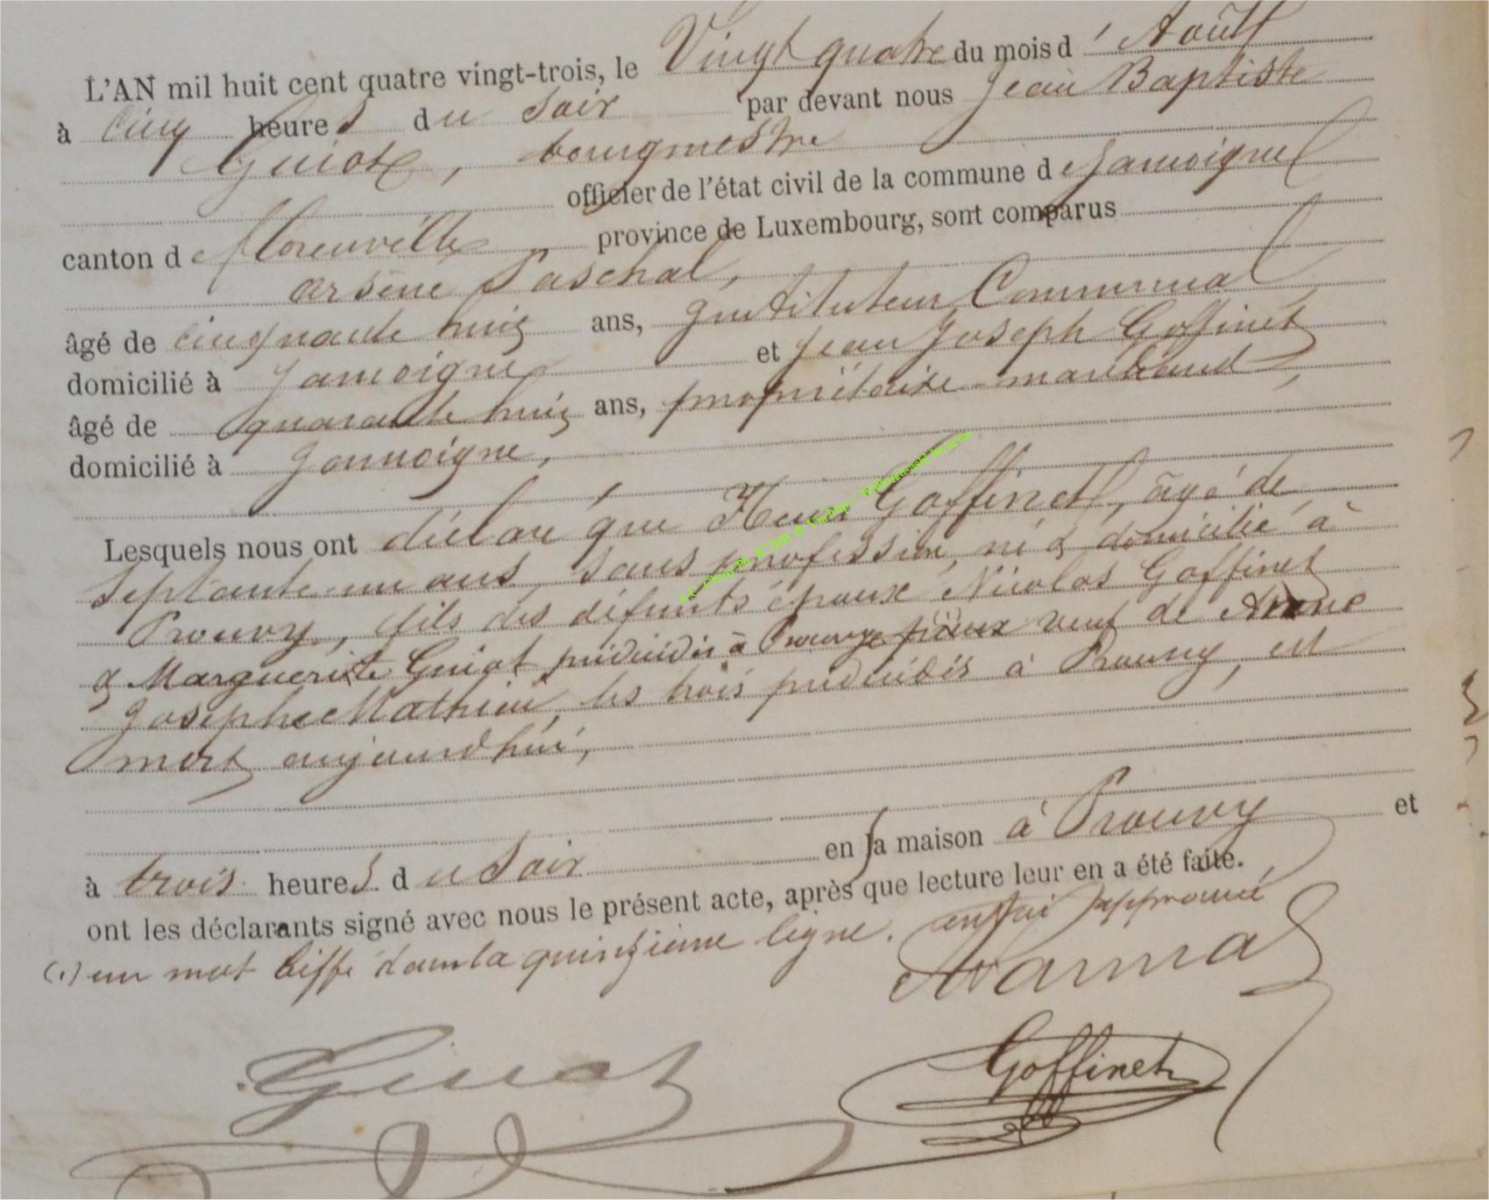 L'AN mil huit cent quatre vingt-trois, le Vingt quatre du mois d'Août
à cinq heures du soir par devant nous Jean Baptiste
Guiot, bourgmestre
officier de l'état civil de la commune de Jamoigne
canton de florenville province de Luxembourg, sont comparus
arsène Paschal,
âgé de cinquante huit ans, Instituteur Communal
domicilié à Jamoigne et Jean Joseph Goffinet
âgé de quarante huit ans, propriétaire-marchand,
domicilié à Jamoigne,
Lesquels nous ont déclaré que Henri Goffinet, âgé de
septante-un ans, sans profession, né & domicilié à
Prouvy, fils des défunts époux Nicolas Goffinet
& Marguerite Guiot prédécédés à Prouvy veuf de Anne
Josephe Mathieu, les trois prédécédés à Prouvy, est
mort aujourd'hui,
à trois heures du soir en sa maison à Prouvy et
ont les déclarants signé avec nous le présent acte, après que lecture leur en a été faite.
(.) un mot biffé dans la quinzième ligne. approuvé
Guiot
Goffinet